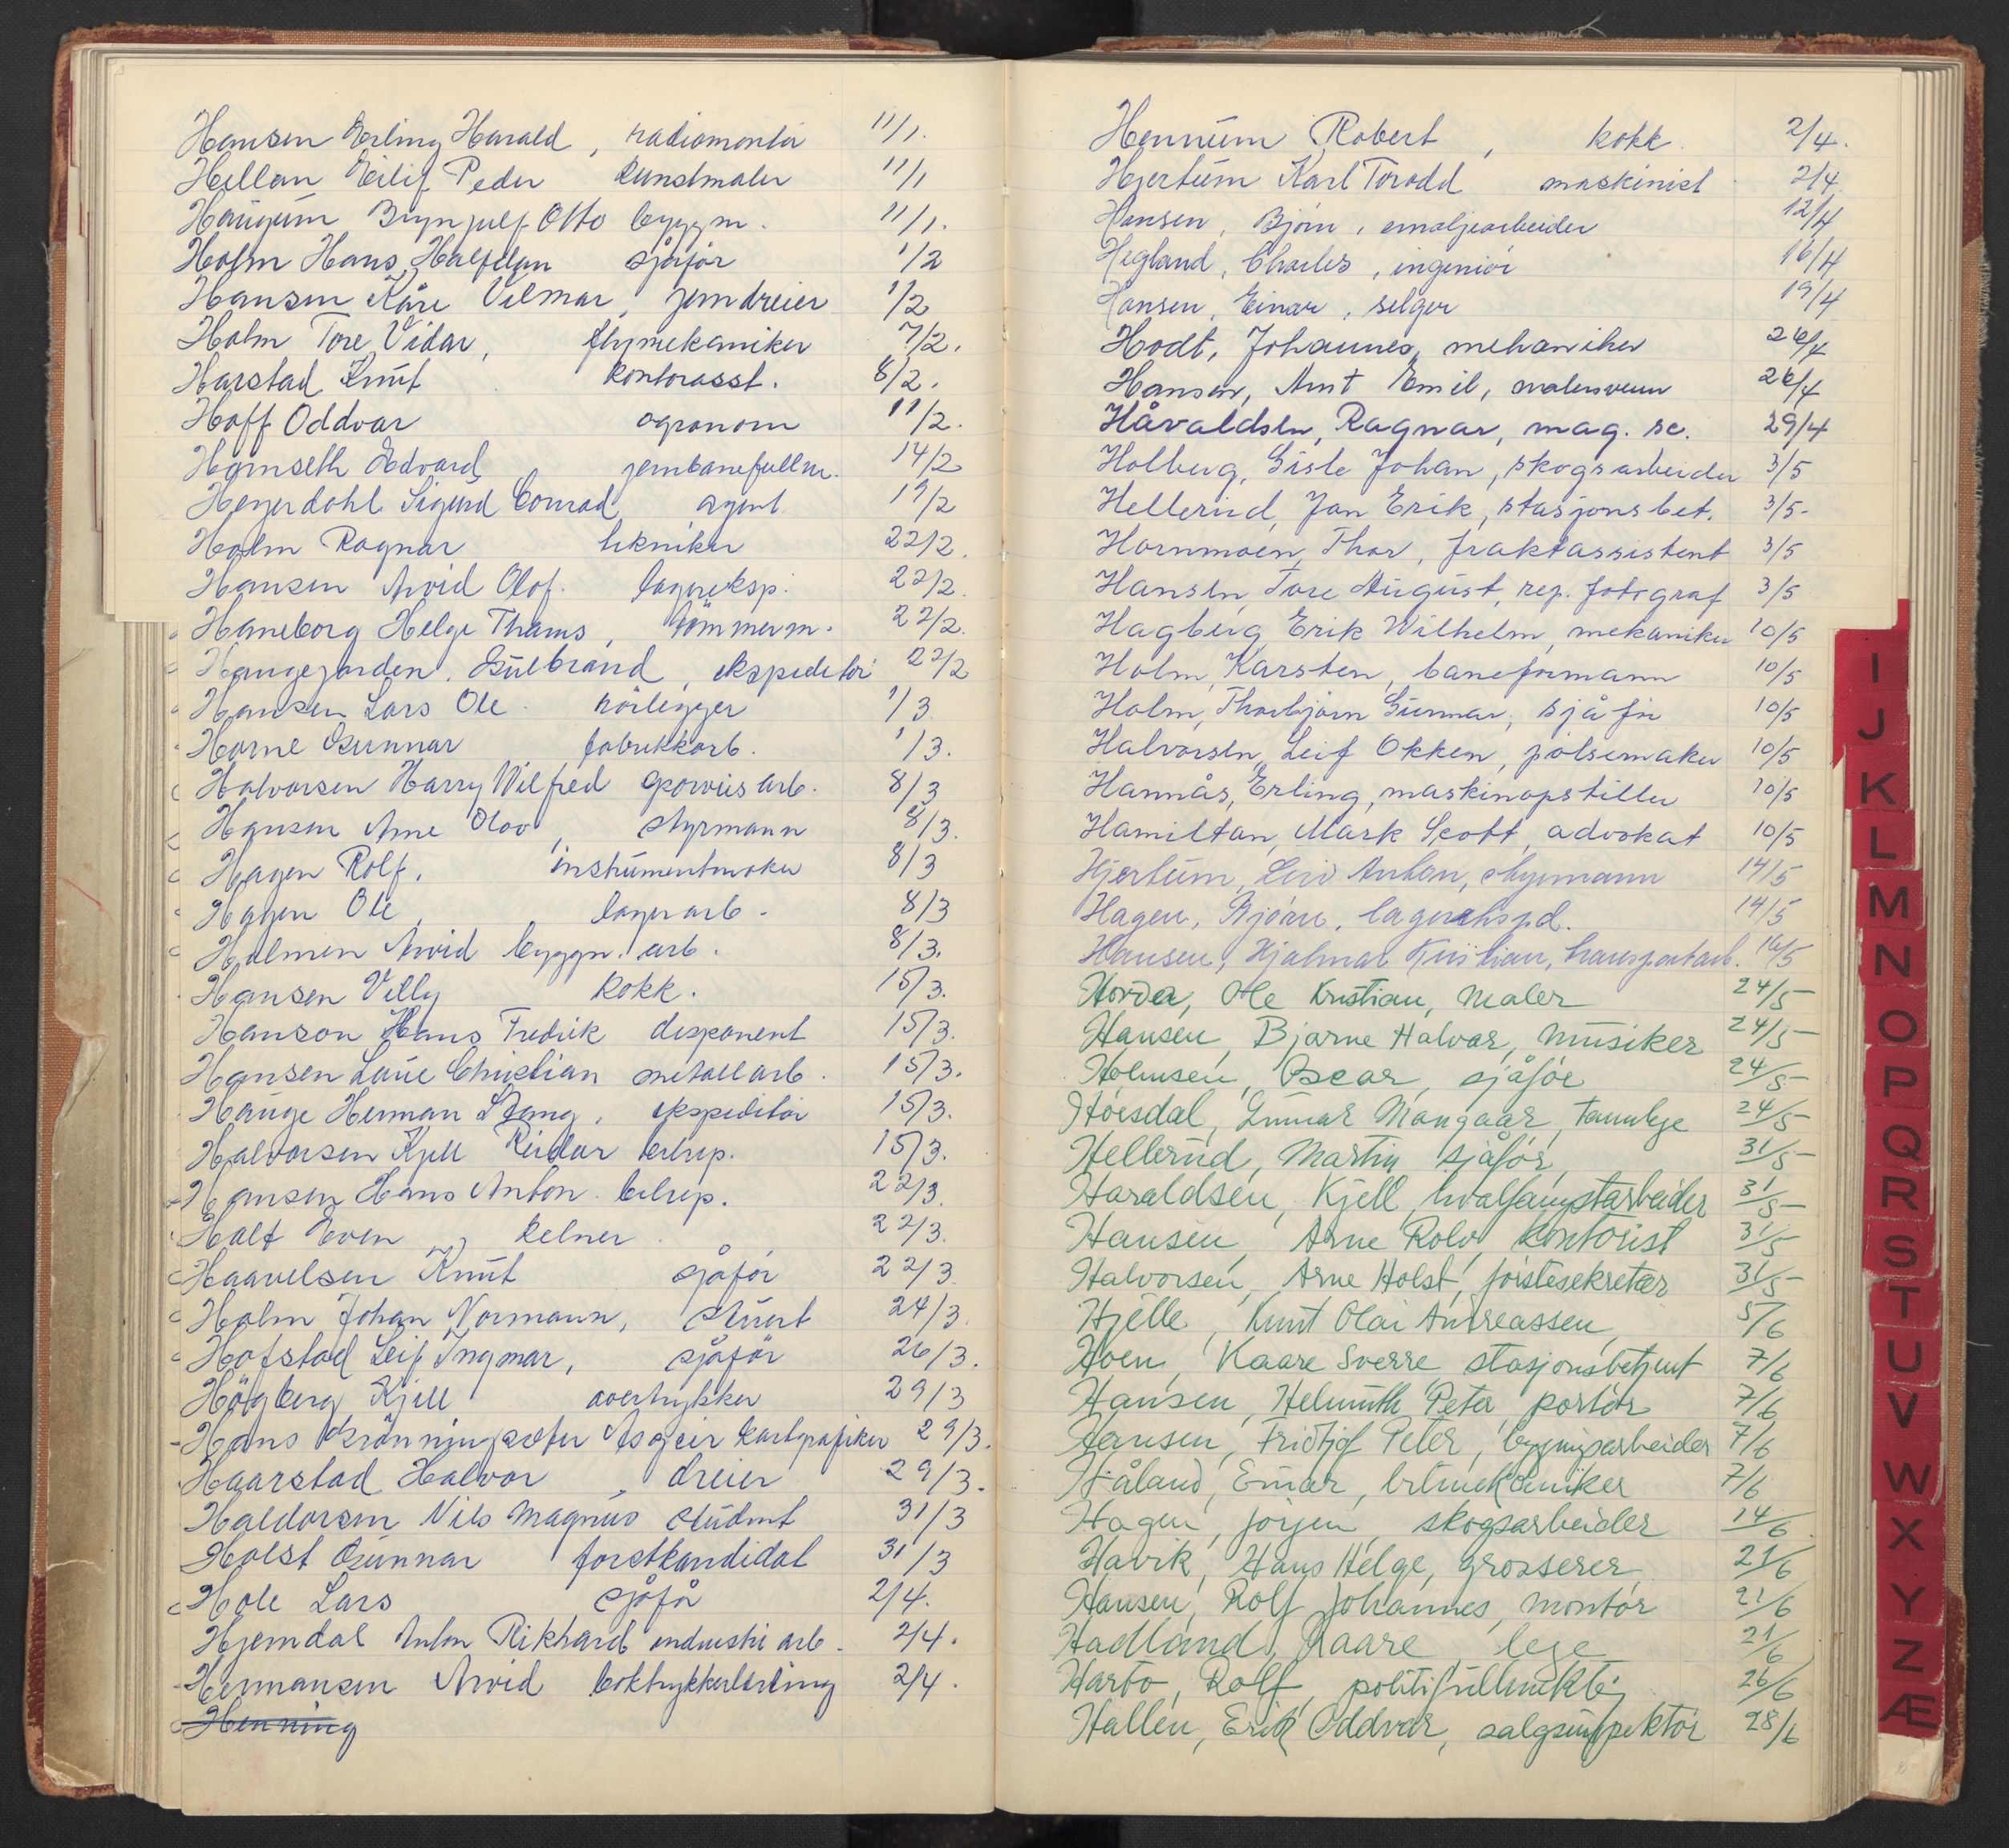 Hansen Erling Harald, radiomontør 11/1.
Hellan Eilif Peder kunstmaler 11/1
Haugum Brynjulf Otto byggm. 11/1.
Holm Hans Halfdan sjåfør 1/2
Hansen Kåre Vilmar, jerndreier 1/2
Holm Tore Vidar, flymekaniker 7/2.
Harstad Knut kontorasst. 8/2.
Hoff Oddvar agronom 11/2.
Hamseth Edvard jernbanefullm. 14/2
Heyerdahl Sigurd Conrad agent 19/2
Holm Ragnar tekniker 22/2.
Hansen Arvid Olof. lagereksp. 22/2.
Haneborg Helge Thams, tømmerm. 22/2.
Haugejorden, Gulbrand, ekspeditør 22/2
Hansen Lars Ole rørlegger 1/3
Horne Gunnar fabrikkarb. 1/3.
Halvorsen Harry Wilfred sporveisarb. 8/3
Hansen Arne Olav, styrmann 8/3.
Hagen Rolf, instrumentmaker 8/3
Hagen Ole, lagerarb. 8/3
Holmen Arvid byggn. arb. 8/3.
Hansen Villy kokk. 15/3.
Hanson Hans Fredrik disponent 15/3.
Hansen Laue Christian metallarb. 15/3.
Hauge Herman Stang, ekspeditør 15/3.
Halvorsen Kjell Reidar bilrep. 15/3.
Hansen Hans Anton bilrep. 22/3.
Halt Even, kelner 22/3.
Haavelsen Knut sjåfør 22/3.
Holm Johan Normann, stuert 24/3.
Hofstad Leif Ingmar, sjåfør 26/3.
Högberg Kjell overtrykker 29/3
Hans Krönningsæter Asgeir kartgrafiker 29/3.
Haarstad Halvor, dreier 29/3.
Haldorsen Nils Magnus student 31/3
Holst Gunnar forstkandidat 31/3
Hole Lars sjåfør 2/4.
Hjemdal Anton Rikhard industri arb. 2/4.
Hermansen Arvid boktrykkerlærling 2/4.
Henning
Hennum Robert, kokk. 2/4.
Hjertum Karl Torodd maskinist 2/4.
Hansen, Bjørn, emaljearbeider 12/4
Hegland, Charles, ingeniør 16/4
Hansen, Einar, selger 19/4
Hodt, Johannes, mekaniker 26/4
Hansen, Arnt Emil, malersvenn 26/4
Håvaldsen, Ragnar, mag. sc. 29/4
Holberg, Gisle Johan, skogsarbeider 3/5
Hellerud, Jan Erik, stasjonsbet. 3/5.
Hornmoen, Thor, fraktassistent 3/5
Hansen, Tore August, rep. fotograf 3/5
Hagberg, Erik Wilhelm, mekaniker 10/5
Holm, Karsten, baneformann 10/5
Holm, Thorbjørn Gunnar, sjåfør 10/5
Halvorsen, Leif Okken, pølsemaker 10/5
Hannås, Erling, maskinopstiller 10/5
Hamilton, Mark Scott, advokat 10/5
Hjertum, Leiv Anton, styrmann 14/5
Hagen, Bjørn, lagerekspd. 14/5
Hansen, Hjalmar Kristian, transportarb. 16/5
Horda, Ole Kristian, maler 24/5
Hansen, Bjarne Halvar, musiker 24/5
Holmsen, Oscar, sjåfør 24/5
Høisdal, Gunnar Mangaar, tannlege 24/5
Hellerud, Martin, sjåfør, 31/5
Haraldsen, Kjell, hvalfangstarbeider 31/5
Hansen, Arne Rolv, kontorist 31/5
Halvorsen, Arne Holst, førstesekretær 31/5
Hjelle, Knut Olai Andreassen, 5/6
Hoen, Kaare Sverre, stasjonsbetjent 7/6
Hansen, Helmuth Peter, portør 7/6
Hansen, Fridtjof Peter, bygningsarbeider 7/6
Håland, Einar, bilmekaniker 7/6
Hagen, Jørjen, skogsarbeider 14/6
Havik, Hans Helge, grosserer 21/6
Hansen, Rolf Johannes, montør 21/6
Hadland, Kaare lege 21/6
Harbo, Rolf, politifullmektig 26/6
Hallen, Erik Oddvar, salgsinspektør 28/6
I
J
K
L
M
N
O
P
Q
R
S
T
U
V
W
X
Y
Z
Æ